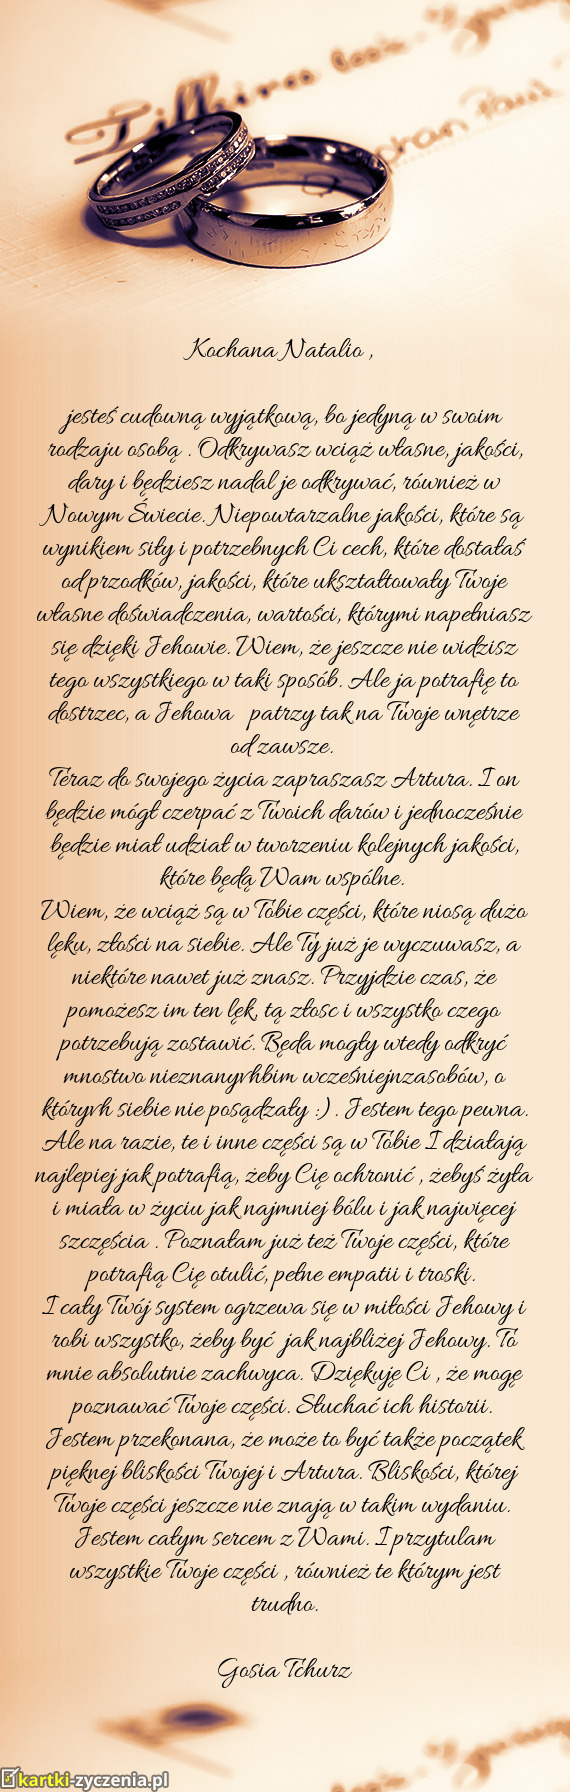 Kochana Natalio ,
jesteś cudowną wyjątkową, bo jedyną w swoim
rodzaju osobą . Odkrywasz wciąż własne, jakości,
dary i będziesz nadal je odkrywać, również w
Nowym Świecie. Niepowtarzalne jakości, które są
wynikiem siły i potrzebnych Ci cech, które dostałaś
od przodków, jakości, które ukształtowały Twoje
własne doświadczenia, wartości, którymi napełniasz
się dzięki Jehowie. Wiem, że jeszcze nie widzisz
tego wszystkiego w taki sposób. Ale ja potrafię to
dostrzec, a Jehowa patrzy tak na Twoje wnętrze
od zawsze.
Teraz do swojego życia zapraszasz Artura. I on
będzie mógł czerpać z Twoich darów i jednocześnie
będzie miał udział w tworzeniu kolejnych jakości,
które będą Wam wspólne.
Wiem, że wciąż są w Tobie części, które niosą dużo
lęku, złości na siebie. Ale Ty już je wyczuwasz, a
niektóre nawet już znasz. Przyjdzie czas, że
pomożesz im ten lęk, tą złosc i wszystko czego
potrzebują zostawić. Będa mogły wtedy odkryć
mnostwo nieznanyvhbim wcześniejnzasobów, o
któryvh siebie nie posądzały :) . Jestem tego pewna.
Ale na razie, te i inne części są w Tobie I działają
najlepiej jak potrafią, żeby Cię ochronić , żebyś żyła
i miała w życiu jak najmniej bólu i jak najwięcej
szczęścia . Poznałam już też Twoje części, które
potrafią Cię otulić, pełne empatii i troski.
I cały Twój system ogrzewa się w miłości Jehowy i
robi wszystko, żeby być jak najbliżej Jehowy. To
mnie absolutnie zachwyca. Dziękuję Ci , że mogę
poznawać Twoje części. Słuchać ich historii.
Jestem przekonana, że może to być także początek
pięknej bliskości Twojej i Artura. Bliskości, której
Twoje części jeszcze nie znają w takim wydaniu.
Jestem całym sercem z Wami. I przytulam
wszystkie Twoje części , również te którym jest
trudno.
Gosia Tchurz
kartki-zyczenia.pl